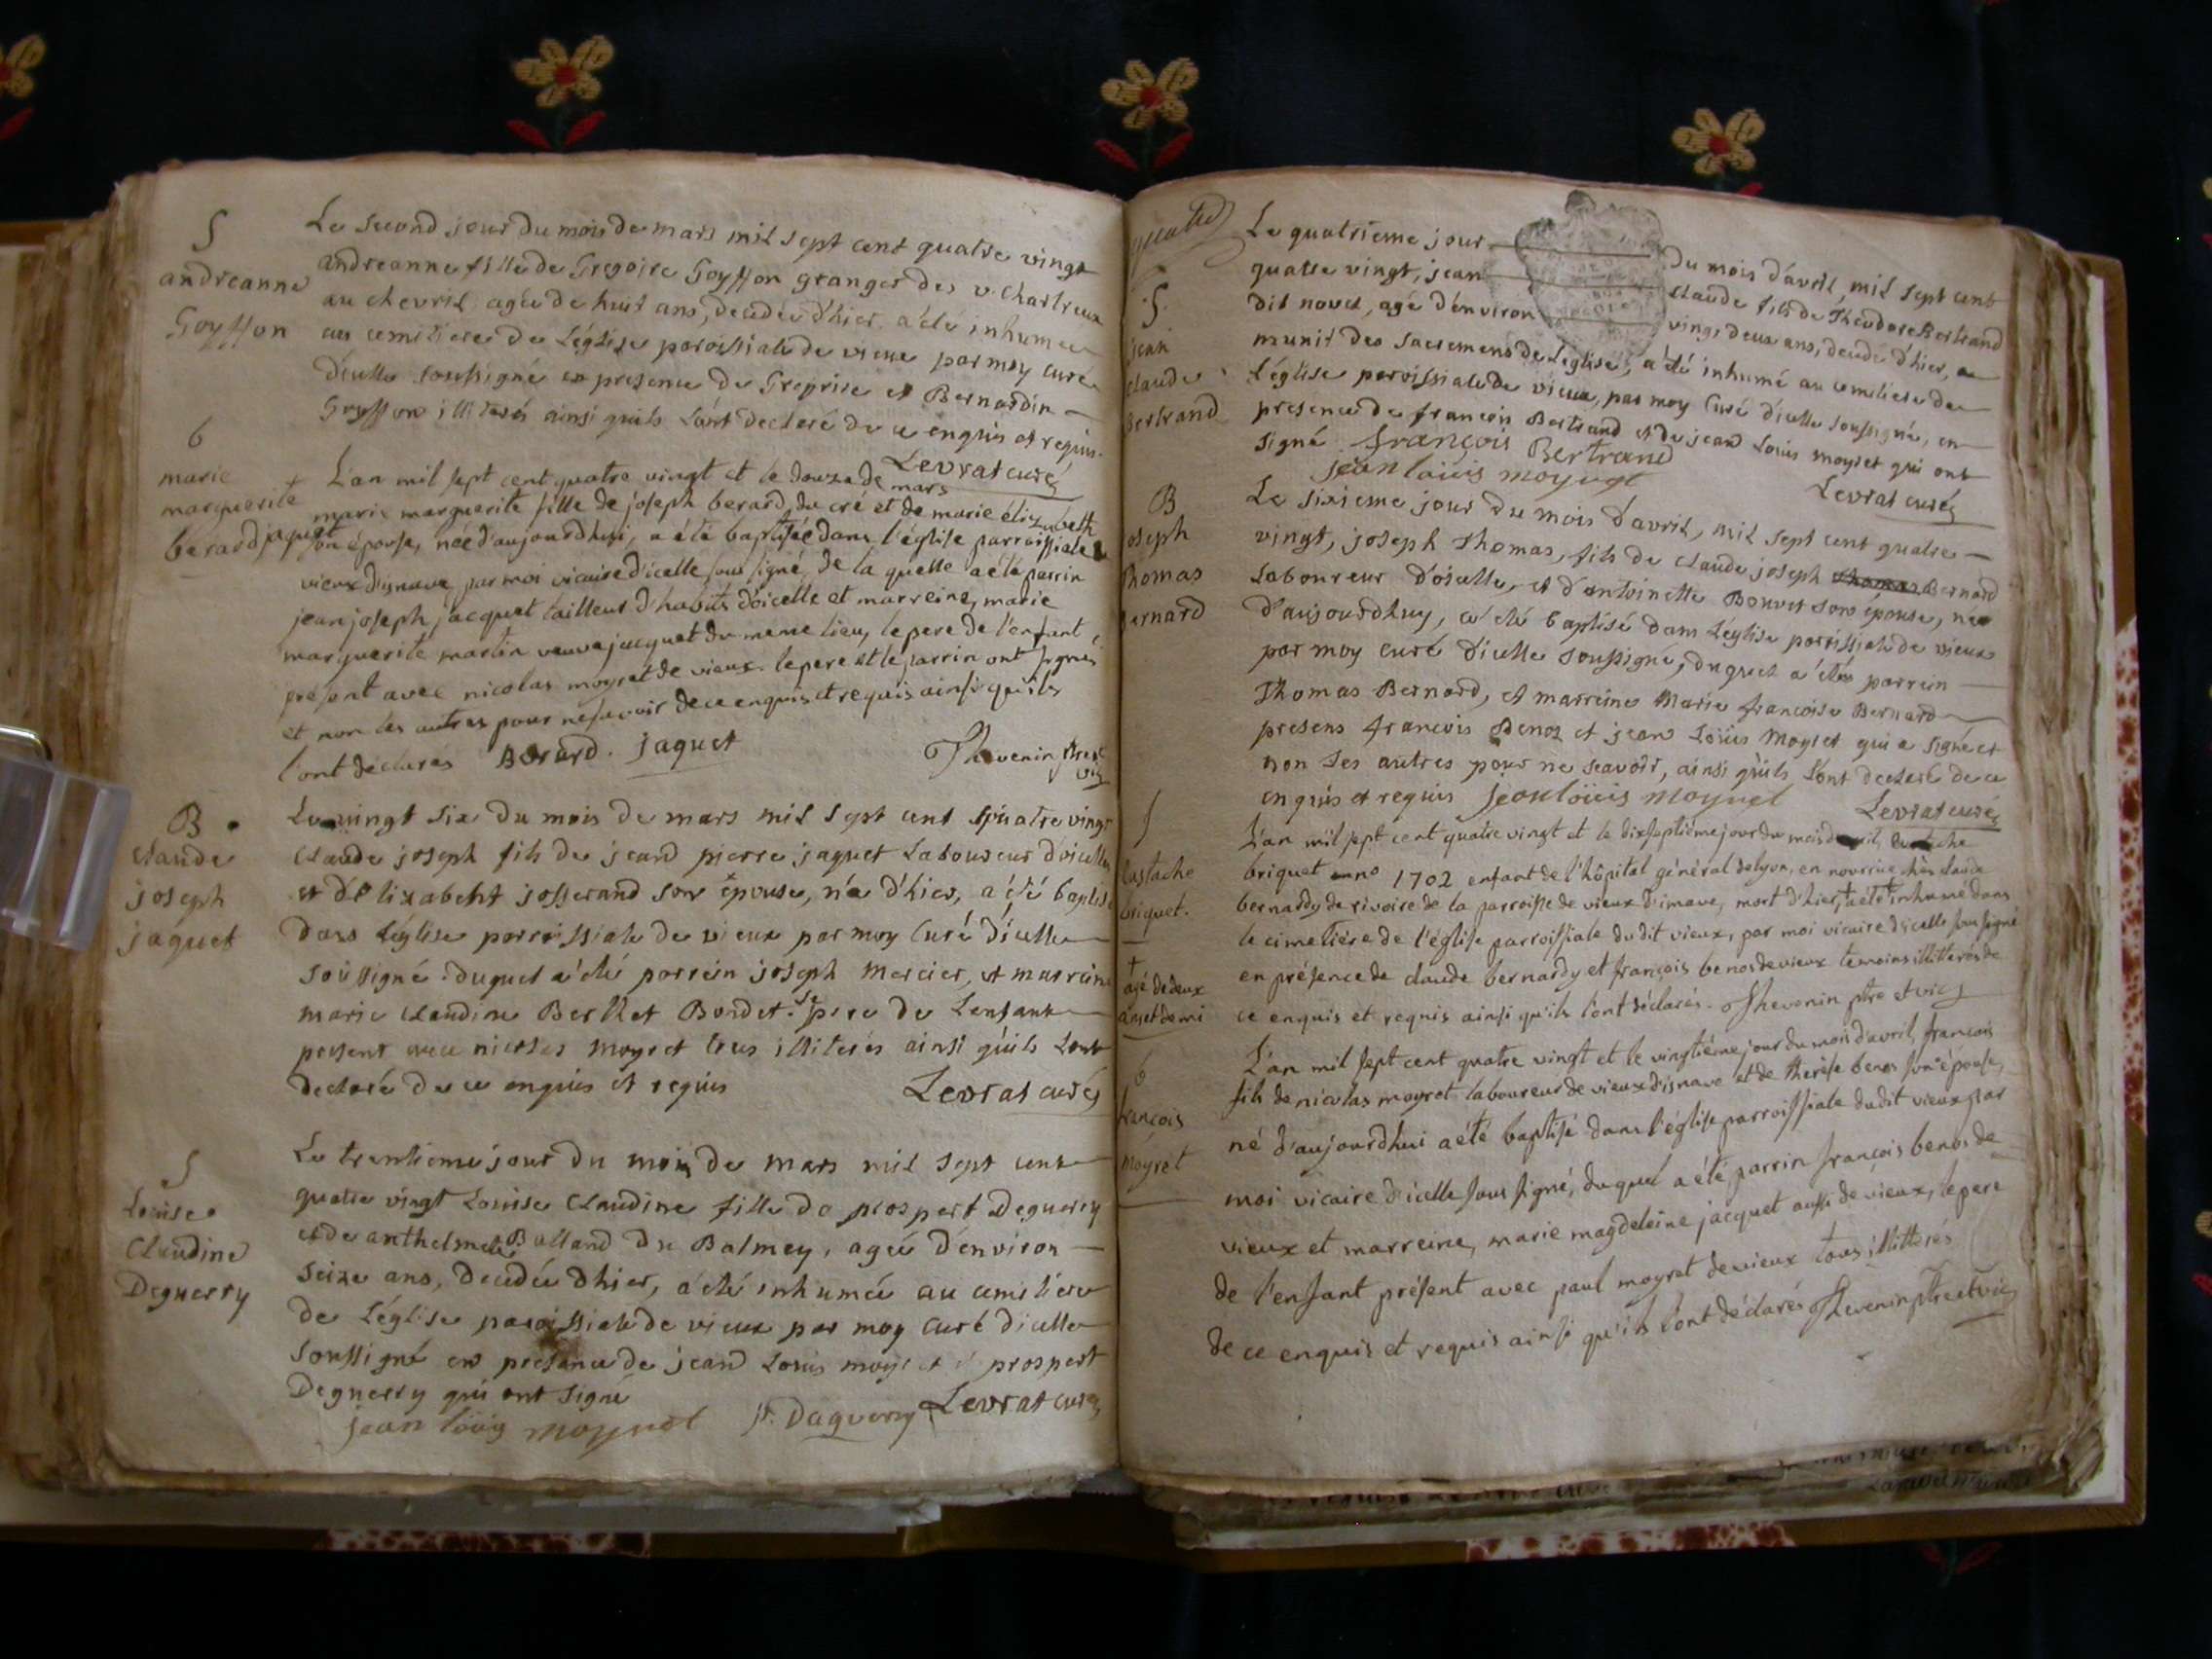 S
andreanne
Goyffon
Le second jour du mois de mars mil sept cent quatre vingt
andreanne fille de Gregoire Goyffon granger des v. chartreux
au chevril agée de huit ans, decedée d'hier a été inhumée
au cemetiere de L'église paroissiale de vieux par moy curé
d'icelle soussigné en presence de Gregoire et Bernardin
Goyffon illiterés ainsi quils L'ont declaré de ce enquis et requis.
Levrat curé
b
marie
marguerite
berard jaquet
L'an mil sept cent quatre vingt et le douze de mars
marie marguerite fille de joseph berard du cré et de marie élizabeth
jaquet son épouse, née d'aujourdhui, a été baptisée dans l'église parroissiale de
vieux d'isnave par moi vicaire d'icelle sous signé, de la quelle a été parrin
jean joseph jacquet tailleur d'habits d'oicelle et marreine, marie
marguerite martin veuve jacquet du meme lieu, le pere de l'enfant
présent avec nicolas moyret de vieux. le pere et le parrin ont signés
et non les autres pour ne savoir de ce enquis et requis ainsi qu'ils
l'ont déclarés Berard. jaquet Thevenin ptre et vic
B
claude
joseph
jaquet
Le vingt six du mois de mars mil sept cent quatre vingt
claude joseph fils de jean pierre jaquet Laboureur d'oiselle
et d'Elizabeht josserand son épouse, né d'hier, a été baptisé
dans L'église parroissiale de vieux par moy Curé d'icelle
soussigné. duquel a été parrein joseph Mercier, et marreine
marie claudine Berthet Bordet. Le pere de Lenfant
present avec nicolas Moyret tous illiterés ainsi quils Lont
declaré de ce enquis et requis Levrat curé
S
Louise
Claudine
Deguerry
Le trentieme jour du mois de mars mil sept cent
quatre vingt Louise Claudine fille de prospert Deguerry
et de anthelmette Balland du Balmey, agée d'environ
seize ans, decedée d'hier, a été inhumée au cemetiere
de L'église paroissiale de vieux par moy curé d'icelle
soussigné en presence de jean Louis moyret et prospert
Deguerry qui ont signé
jean loüis moyret p. Daguerry Levrat curé
S.
jean
claude
Bertrand
Le quatrieme jour du mois d'avril, mil sept cent
quatre vingt, jean claude fils de Theodore Bertrand
dit novel, agé d'environ vingt deux ans, decedé d'hier,
munit des sacremens de L'église, a été inhumé au cemetiere de
L'église paroissiale de vieux, par moy Curé d'icelle soussigné, en
presence de francois Bertrand et de jean Louis moyret qui ont
signé françois Bertrand
jean loüis moyret Levrat curé
B
joseph
Thomas
Bernard
Le sixieme jour du mois d'avril, mil sept cent quatre
vingt, joseph Thomas, fils de claude joseph Bernard
Laboureur d'oiselle, et d'antoinette Bouvet son épouse, né
d'aujourdhuy, a été baptisé dans L'église paroissiale de vieux
par moy curé d'icelle soussigné, duquel a été parrein
Thomas Bernard, et marreine Marie francoise Bernard
presens francois Benoz et jean Loüis Moyret qui a signé et
non les autres pour ne scavoir, ainsi quils L'ont declaré de ce
enquis et requis jean loüis moyret Levrat curé
S
Eustache
briquet.
+
agé de deux
ans et demi
L'an mil sept cent quatre vingt et le dixseptième jour du mois d'avril, Eustache
briquet 1702 enfant de l'hôpital général de lyon, en nourrice chés claude
bernardy de rivoire de la parroisse de vieux d'isnave, mort d'hier, + a été inhumé dans
le cimetière de l'église parroissiale du dit vieux, par moi vicaire d'icelle sous signé
en présence de claude bernardy et françois benos de vieux temoins illittérés de
ce enquis et requis ainsi qu'ils l'ont déclarés. Thevenin ptre et vic
b
françois
moyret
L'an mil sept cent quatre vingt et le vingtième jour du mois d'avril, francois
fils de nicolas moyret laboureur de vieux d'isnave et de thérèse benos son épouse,
né d'aujourdhui a été baptisé dans l'église parroissiale dudit vieux par
moi vicaire d'icelle sous signé, duquel a été parrin françois benos de
vieux et marreine, marie magdeleine jacquet aussi de vieux, le pere
de l'enfant présent avec paul moyret de vieux tous illittérés
de ce enquis et requis ainsi qu'ils l'ont déclarés Thevenin ptre et vic